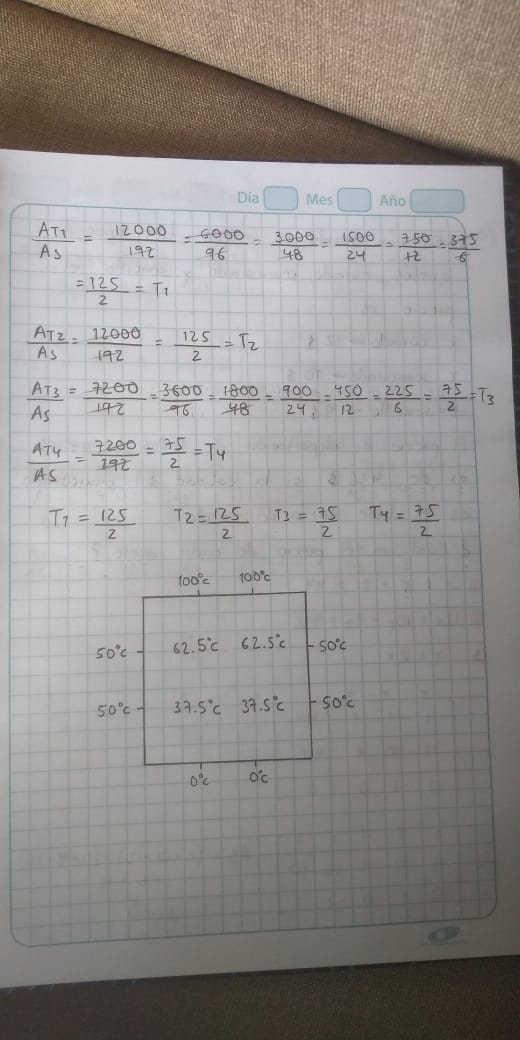 Día Mes Año
AT1/As = 12000/192 = 6000/96 = 3000/48 = 1500/24 = 750/12 = 375/6
= 125/2 = T1
AT2/As = 12000/192 = 125/2 = T2
AT3/As = 7200/192 = 3600/96 = 1800/48 = 900/24 = 450/12 = 225/6 = 75/2 = T3
AT4/As = 7200/192 = 75/2 = T4
T1 = 125/2 T2 = 125/2 T3 = 75/2 T4 = 75/2
100°c 100°c
50°c 62.5°c 62.5°c 50°c
50°c 37.5°c 37.5°c 50°c
0°c 0°c